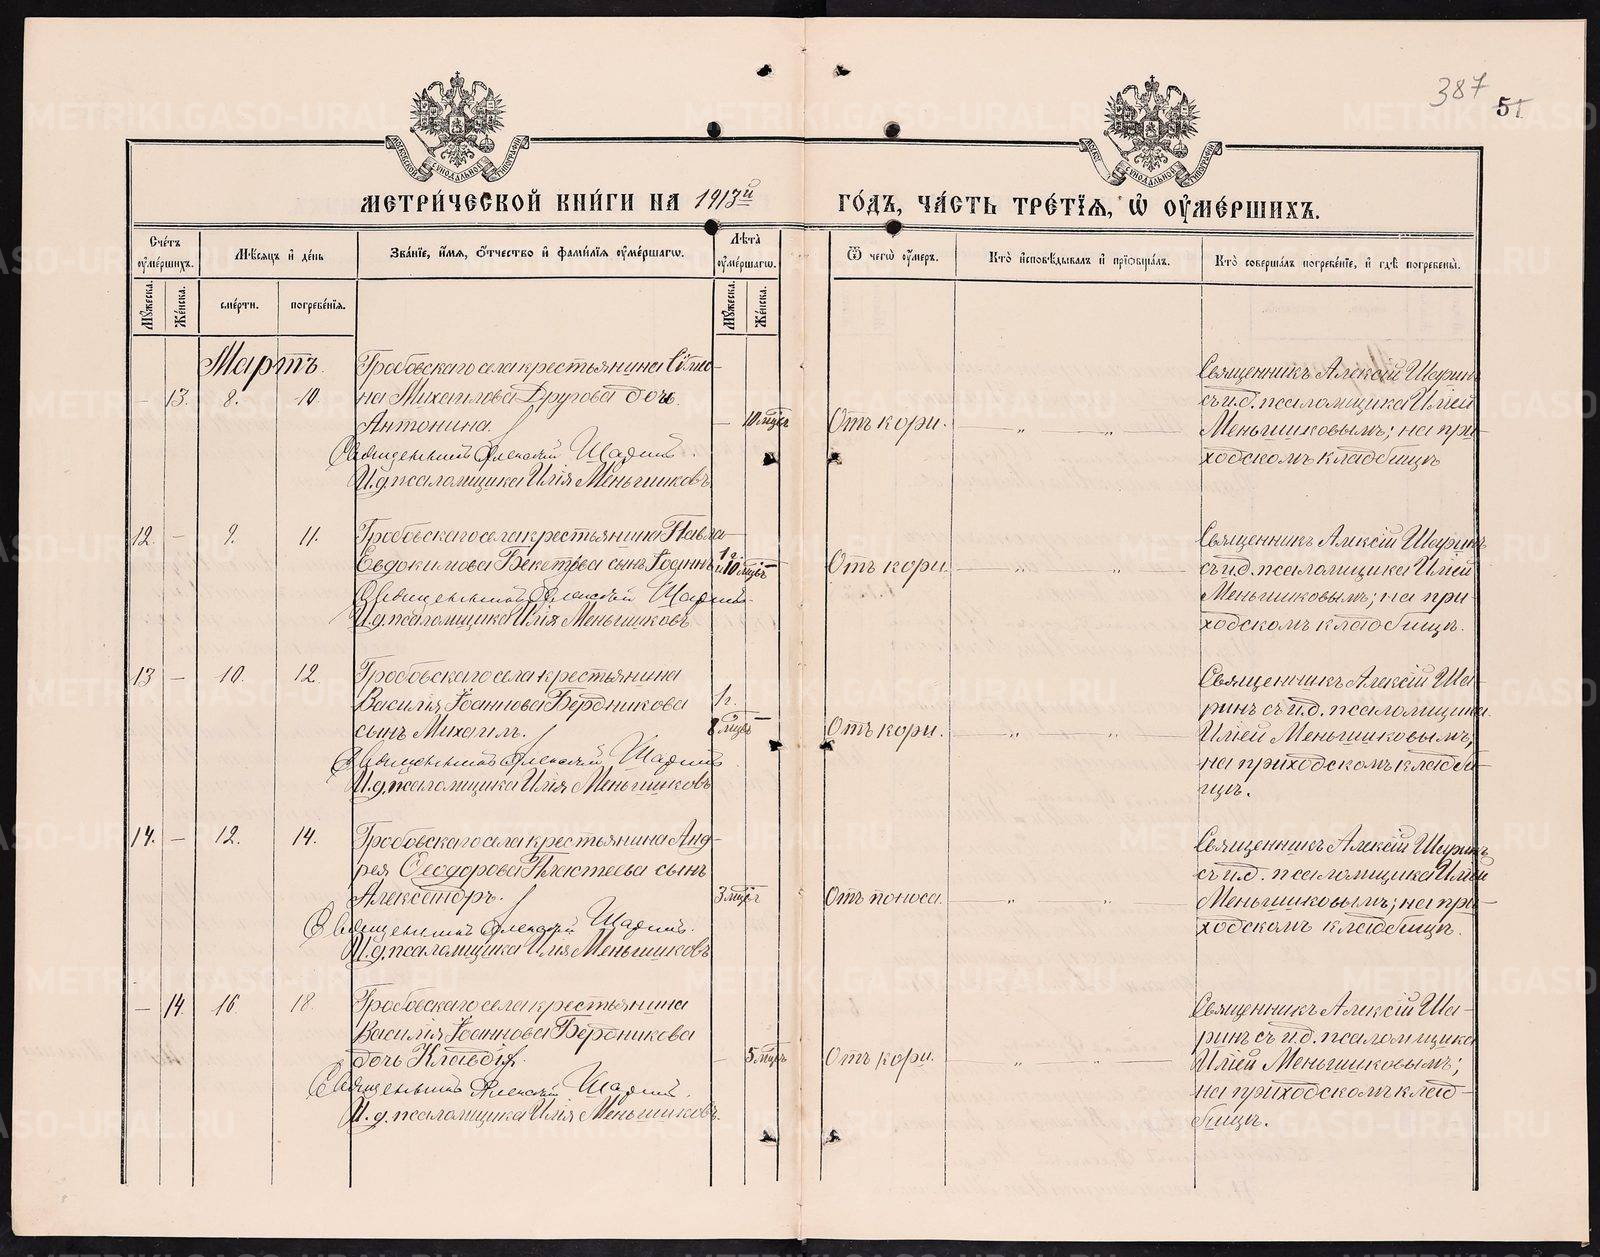 387 51
МЕТРИ́ЧЕСКОЙ КНИ́ГИ НА 1913й ГО́ДЪ, ЧА́СТЬ ТРЕ́ТІѦ, Ѡ҆ ОУ҆МЕ́РШИХЪ.
Сче́тъ оу҆ме́ршихъ.
Мѣ́сѧцъ и҆ де́нь
Зва́нїе, и҆́мѧ, ѻ҆́тчество и҆ фами́лїѧ оу҆ме́ршагѡ.
Лѣ́та оу҆ме́ршагѡ.
Ѿ чегѡ̀ оу҆́меръ.
Кто̀ и҆сповѣ́дывалъ и҆ прїѻбща́лъ.
Кто̀ соверша́лъ погребе́нїе, и҆ гдѣ̀ погребены̀.
Мꙋ́жеска.
Же́нска.
сме́рти.
погребе́нїѧ.
Мꙋ́жеска.
Же́нска.
Мартъ.
- 13. 8. 10.
Гробовскаго села крестьянина Симо-
на Михаилова Другова дочь
Антонина.
Священникъ Алексій Шаринъ.
И.д. псаломщика Илія Меньшиковъ
- 10 мцвъ
Отъ кори. „ „
Священникъ Алексій Шаринъ
съ и.д. псаломщика Иліей
Меньшиковымъ; на при-
ходскомъ кладбищѣ
12. - 9. 11.
Гробовскаго села крестьянина Павла
Евдокимова Бекетова сынъ Іоаннъ
Священникъ Алексій Шаринъ.
И.д. псаломщика Илія Меньшиковъ.
1 г.
и 10 мцвъ -
Отъ кори „ „
Священникъ Алексій Шаринъ
съ и.д. псаломщика Иліей
Меньшиковымъ; на при-
ходскомъ кладбищѣ.
13 - 10. 12.
Гробовскаго села крестьянина
Василія Іоаннова Бердникова
сынъ Михаилъ.
Священникъ Алексій Шаринъ.
И.д. псаломщика Илія Меньшиковъ
1 г.
8 мцвъ -
Отъ кори. „ „
Священникъ Алексій Ша-
ринъ съ и.д. псаломщика
Иліей Меньшиковымъ;
на приходскомъ кладби-
щѣ.
14. - 12. 14.
Гробовскаго села крестьянина Анд-
рея Ѳеодорова сынъ
Александръ.
Священникъ Алексій Шаринъ.
И.д. псаломщика Илія Меньшиковъ
3 мцвъ
Отъ поноса. „ „
Священникъ Алексій Шаринъ
съ и.д. псаломщика Иліей
Меньшиковымъ; на при-
ходскомъ кладбищѣ.
- 14. 16. 18.
Гробовскаго села крестьянина
Василія Іоаннова Бердникова
дочь Клавдія.
Священникъ Алексій Шаринъ.
И.д. псаломщика Илія Меньшиковъ.
- 5 мцвъ
Отъ кори. „ „
Священникъ Алексій Ша-
ринъ съ и.д. псаломщика
Иліей Меньшиковымъ;
на приходскомъ клад-
бищѣ.
METRIKI.GASO-URAL.RU